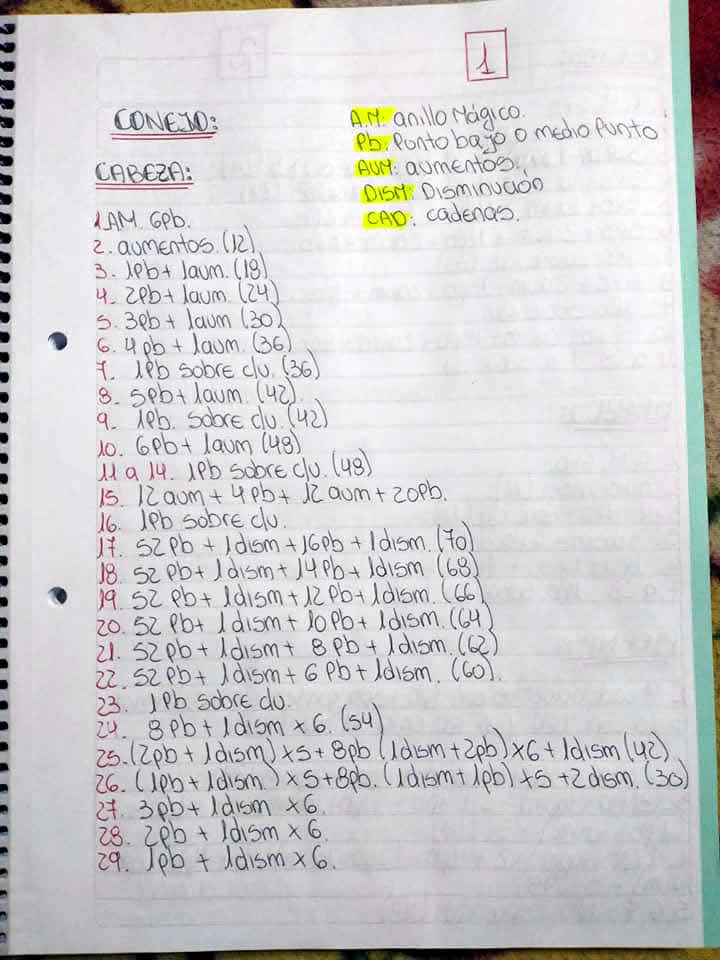 1
CONEJO:
A.M: anillo Mágico.
Pb: Punto bajo o medio Punto
AUM: aumentos.
DISM: Disminución
CAD: cadenas.
CABEZA:
1. AM. 6pb.
2. aumentos. (12)
3. 1pb + 1aum. (18)
4. 2pb + 1aum. (24)
5. 3pb + 1aum (30)
6. 4pb + 1aum. (36)
7. 1pb sobre c/u. (36)
8. 5pb + 1aum. (42)
9. 1pb. sobre c/u. (42)
10. 6pb + 1aum (48)
11 a 14. 1pb sobre c/u. (48)
15. 12 aum + 4pb + 12 aum + 20pb.
16. 1pb sobre c/u.
17. 52 pb + 1dism + 16pb + 1dism. (70)
18. 52 pb + 1dism + 14pb + 1dism (68)
19. 52 pb + 1dism + 12pb + 1dism. (66)
20. 52 pb + 1dism + 10pb + 1dism. (64)
21. 52 pb + 1dism + 8pb + 1dism. (62)
22. 52 pb + 1dism + 6pb + 1dism. (60).
23. 1pb sobre c/u.
24. 8pb + 1dism x 6. (54)
25. (2pb + 1dism) x 5 + 8pb (1dism + 2pb) x 6 + 1dism (42)
26. (1pb + 1dism.) x 5 + 8pb. (1dism + 1pb) x 5 + 2dism. (30)
27. 3pb + 1dism x 6.
28. 2pb + 1dism x 6.
29. 1pb + 1dism x 6.